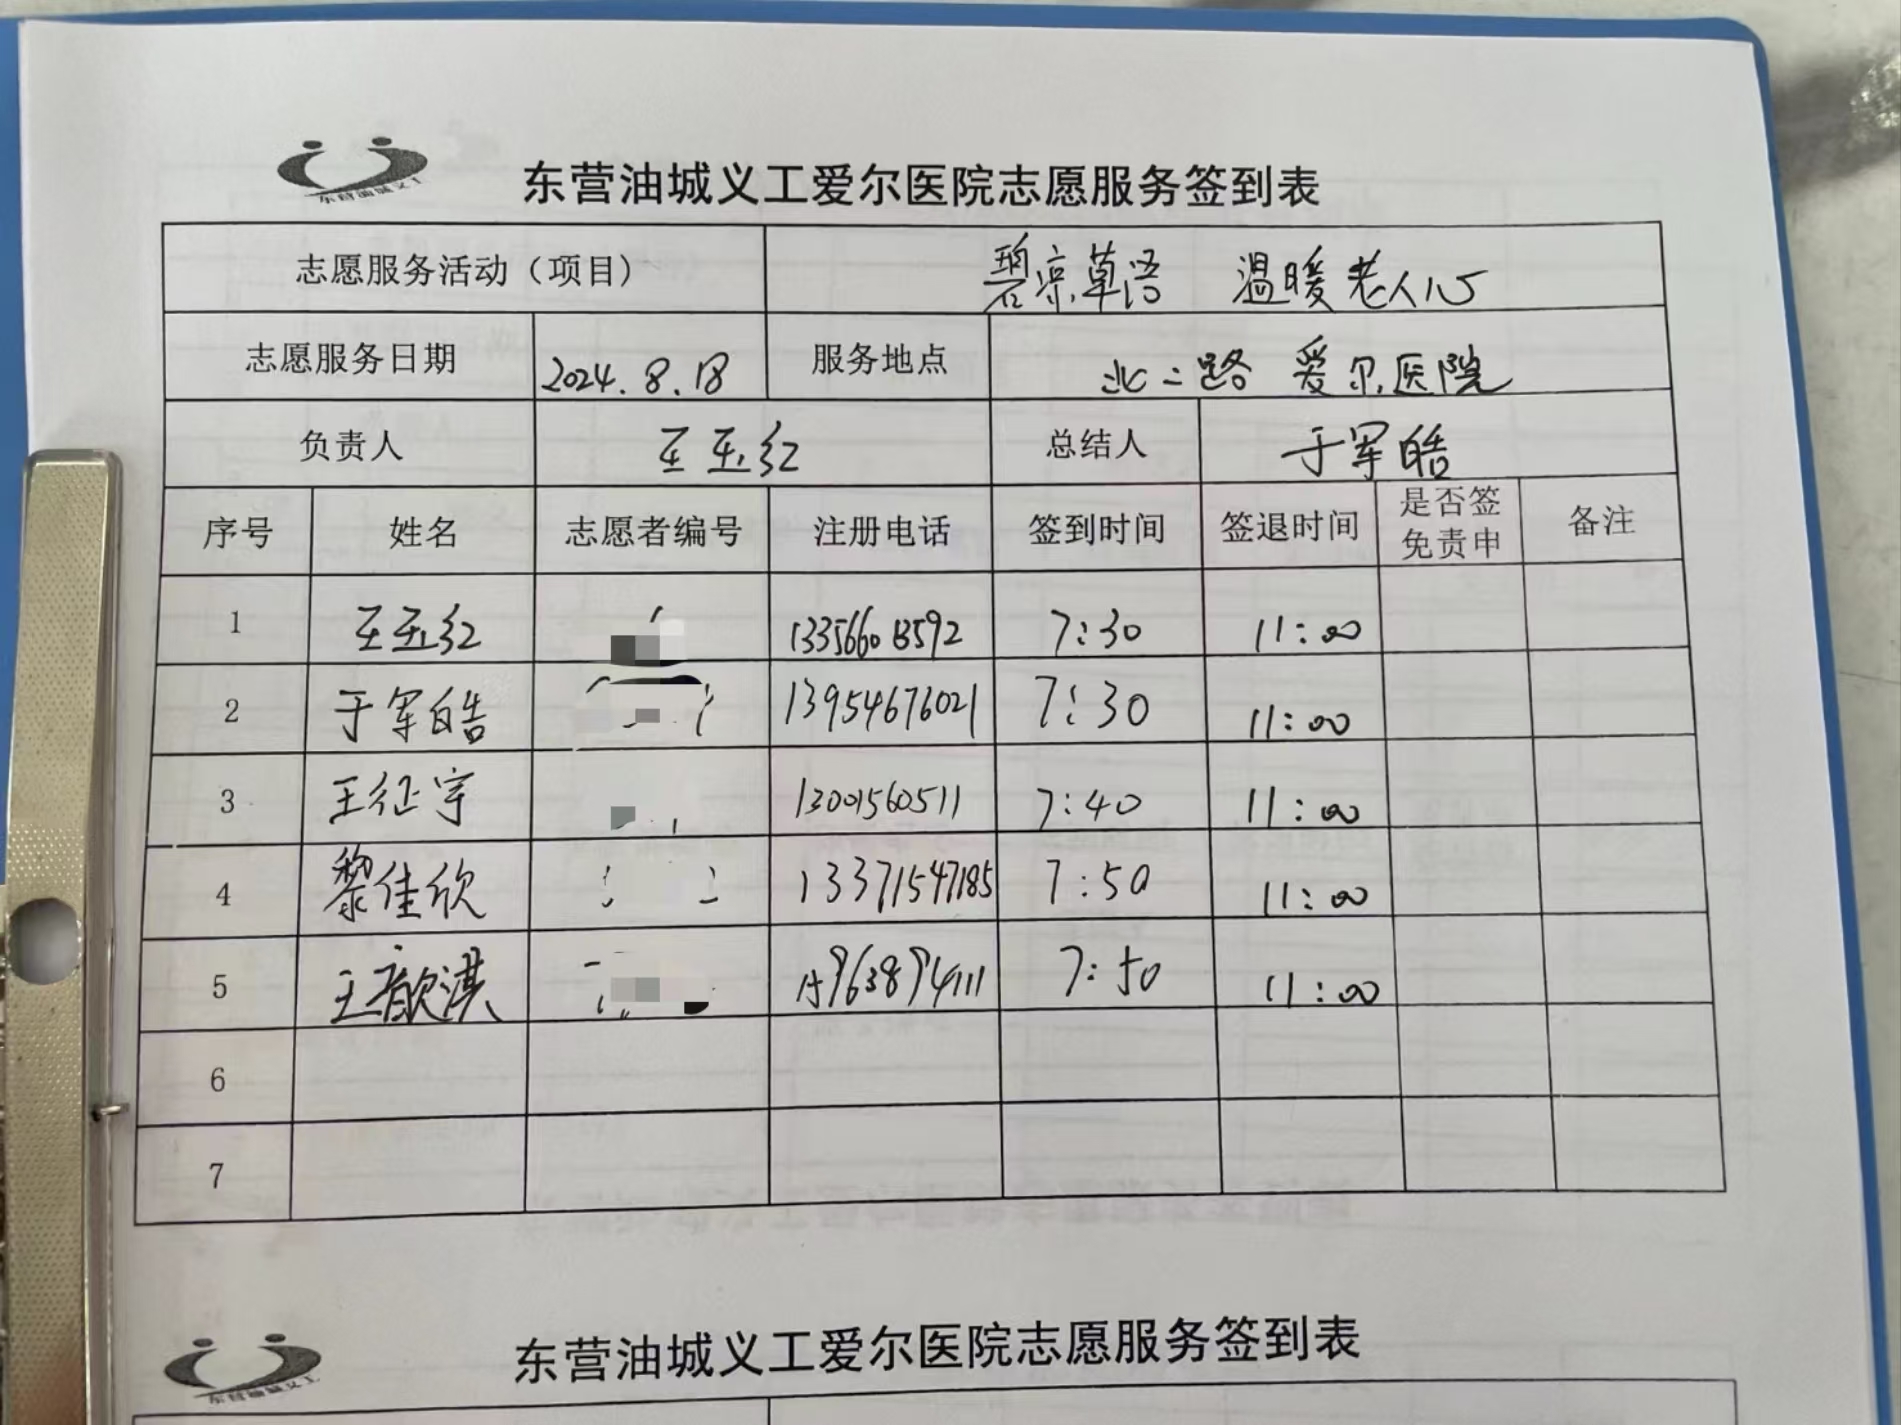 东营油城义工
东营油城义工爱尔医院志愿服务签到表
志愿服务活动（项目） 碧凉草语 温暖老人心
志愿服务日期 2024.8.18 服务地点 北二路 爱尔医院
负责人 王玉红 总结人 于军皓
序号 姓名 志愿者编号 注册电话 签到时间 签退时间 是否签免责申 备注
1 王玉红 13356603592 7:30 11:00
2 于军皓 13954676021 7:30 11:00
3 王征宇 13001560511 7:40 11:00
4 黎佳欣 13371547185 7:50 11:00
5 王歆淇 15963894111 7:50 11:00
6
7
东营油城义工
东营油城义工爱尔医院志愿服务签到表